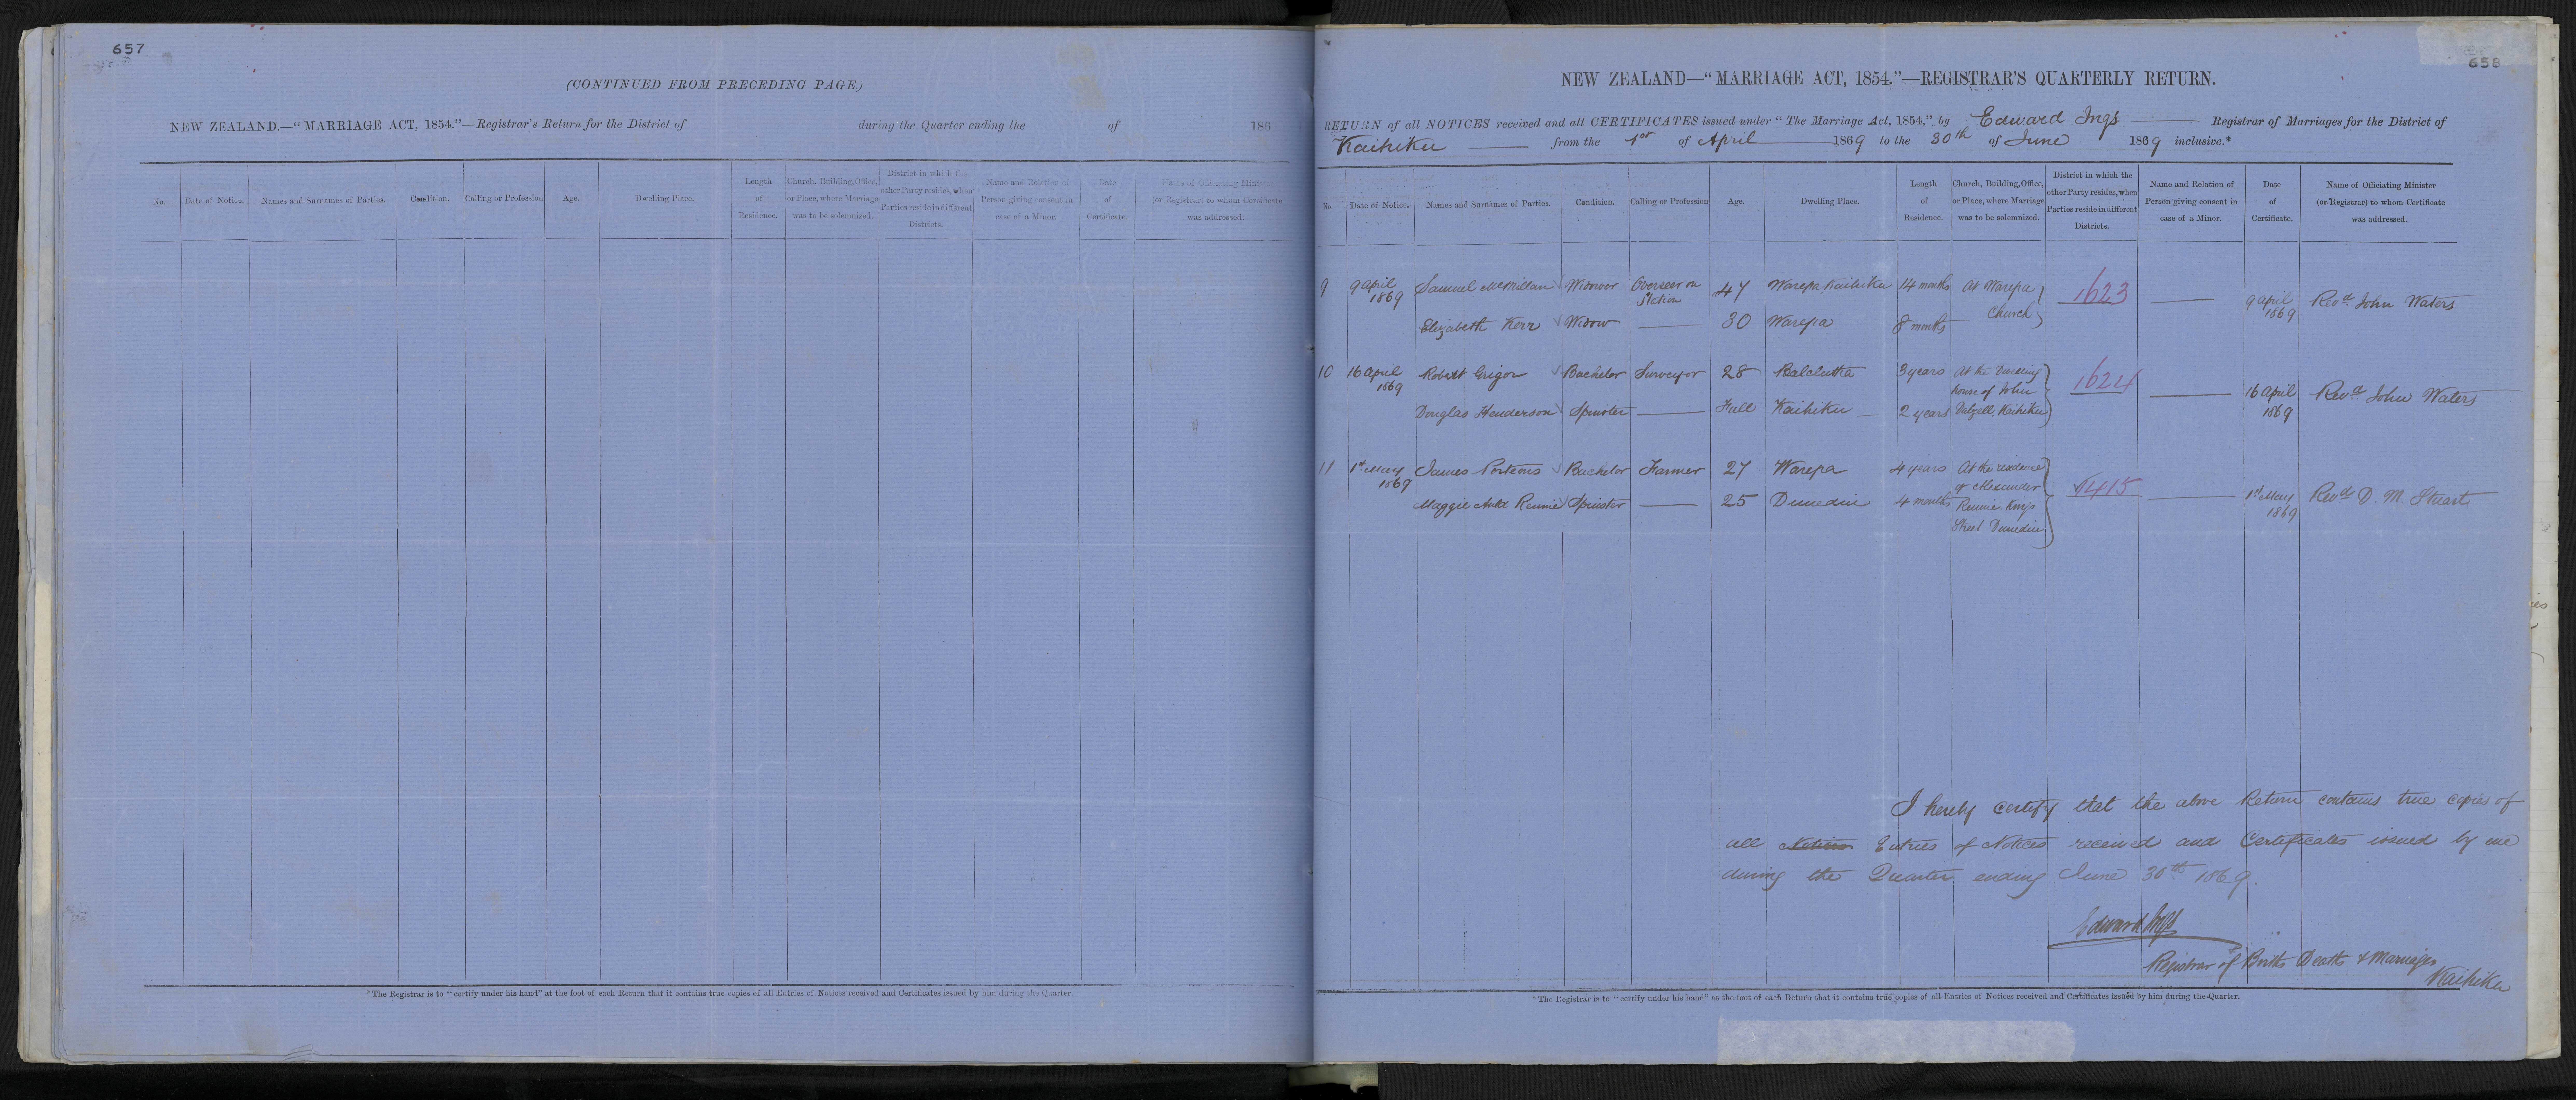 657
(CONTINUED FROM PRECEDING PAGE.)
NEW ZEALAND.—"MARRIAGE ACT, 1854."—Registrar's Return for the District of during the Quarter ending the of 186
No. Date of Notice. Names and Surnames of Parties. Condition. Calling or Profession Age. Dwelling Place. Length of Residence. Church, Building, Office, or Place, where Marriage was to be solemnized. District in which the other Party resides, when Parties reside in different Districts. Name and Relation of Person giving consent in case of a Minor. Date of Certificate. Name of Officiating Minister (or Registrar) to whom Certificate was addressed.
*The Registrar is to "certify under his hand" at the foot of each Return that it contains true copies of all Entries of Notices received and Certificates issued by him during the Quarter.
658
NEW ZEALAND—"MARRIAGE ACT, 1854."—REGISTRAR'S QUARTERLY RETURN.
RETURN of all NOTICES received and all CERTIFICATES issued under "The Marriage Act, 1854," by Edward Ings Registrar of Marriages for the District of
Kaihiku from the 1st of April 1869 to the 30th of June 1869 inclusive.*
No. Date of Notice. Names and Surnames of Parties. Condition. Calling or Profession Age. Dwelling Place. Length of Residence. Church, Building, Office, or Place, where Marriage was to be solemnized. District in which the other Party resides, when Parties reside in different Districts. Name and Relation of Person giving consent in case of a Minor. Date of Certificate. Name of Officiating Minister (or Registrar) to whom Certificate was addressed.
9 9 April 1869 Samuel McMillan Widower Overseer on Station 47 Warepa Kaihiku 14 months At Warepa Church 1623 9 April 1869 Revd. John Waters
Elizabeth Kerr Widow 30 Warepa 8 months
10 16 April 1869 Robert Grigor Bachelor Surveyor 28 Balclutha 3 years At the Dwelling house of John Dalzell, Kaihiku 1624 16 April 1869 Revd John Waters
Douglas Henderson Spinster Full Kaihiku 2 years
11 1st May 1869 James Porteous Bachelor Farmer 27 Warepa 4 years At the residence of Alexander Rennie, Kings Street Dunedin 1415 1st May 1869 Revd D. M. Stuart
Maggie Auld Rennie Spinster 25 Dunedin 4 months
I hereby certify that the above Return contains true copies of
all Notices Entries of Notices received and Certificates issued by me
during the Quarter ending June 30th 1869.
Edward Ings
Registrar of Births Deaths & Marriages
Kaihiku
*The Registrar is to "certify under his hand" at the foot of each Return that it contains true copies of all Entries of Notices received and Certificates issued by him during the Quarter.